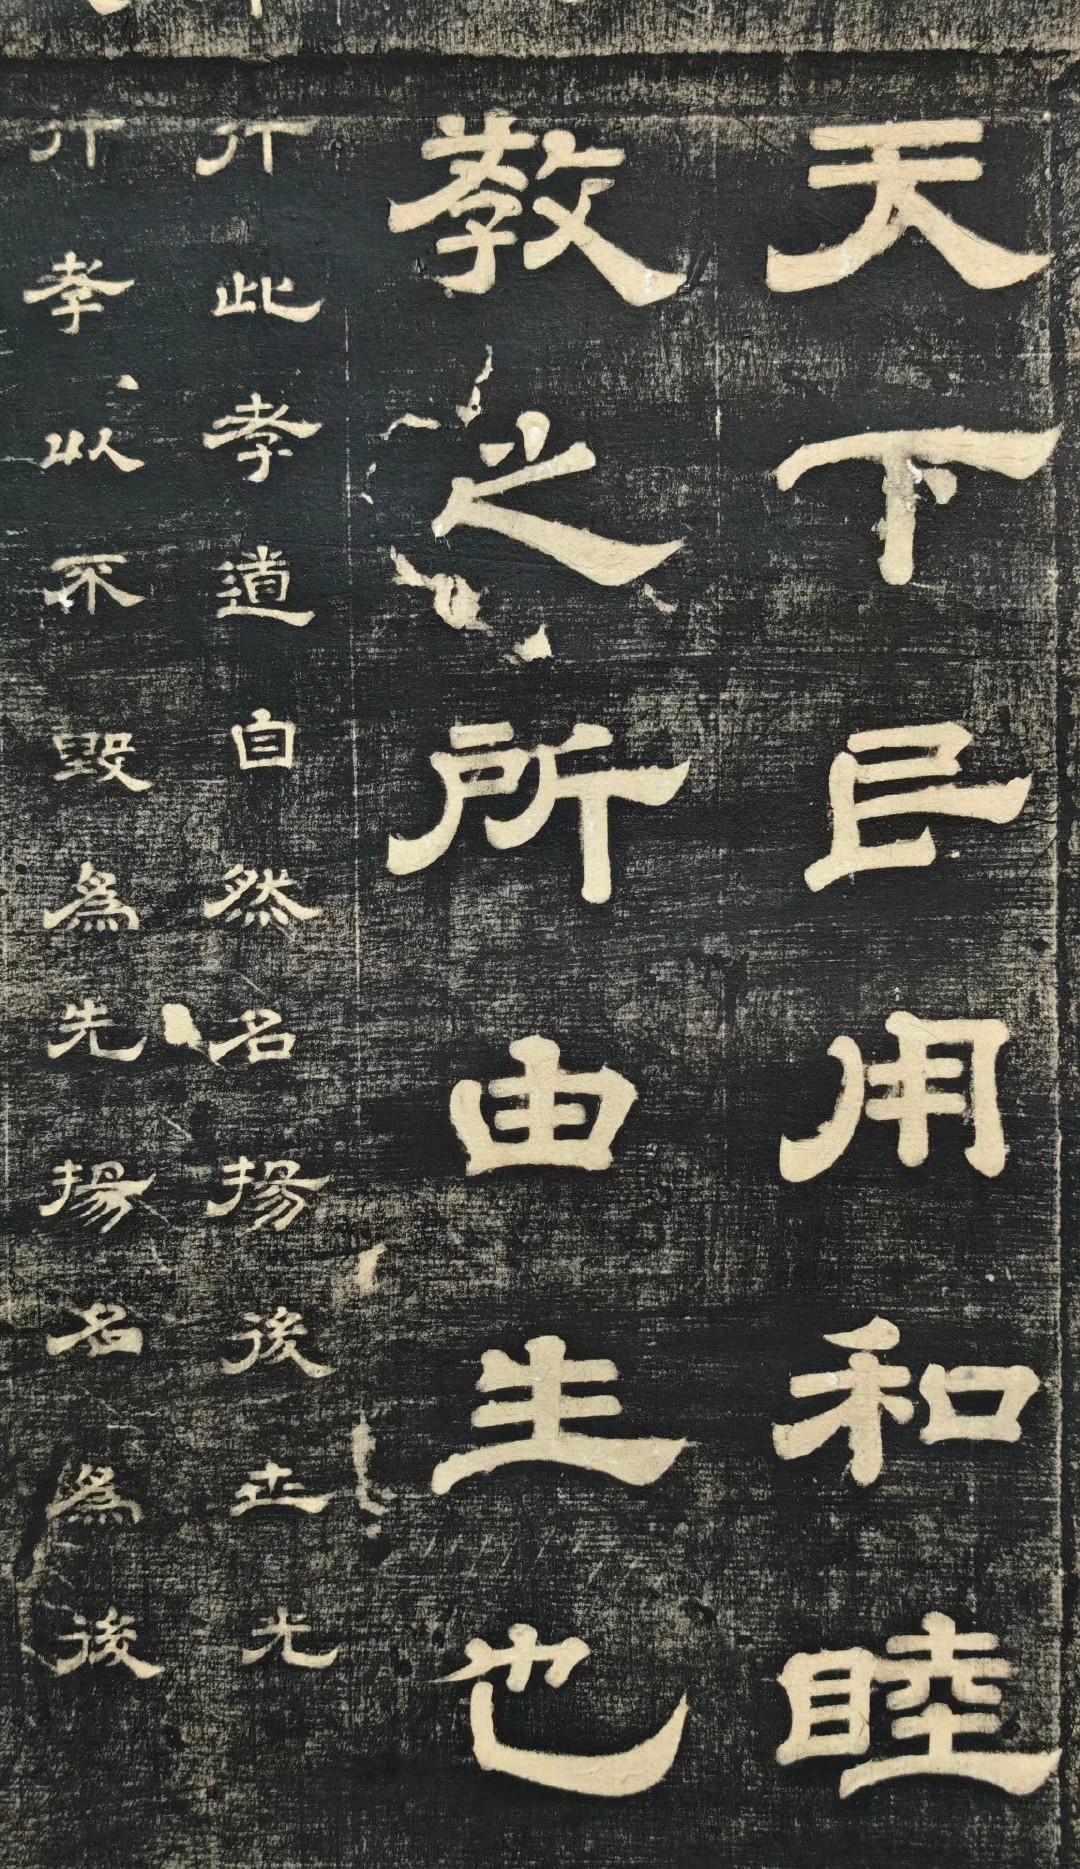 天下民用和睦
教之所由生也
行此孝道自然名揚後世光
行孝以不毀爲先揚名爲後